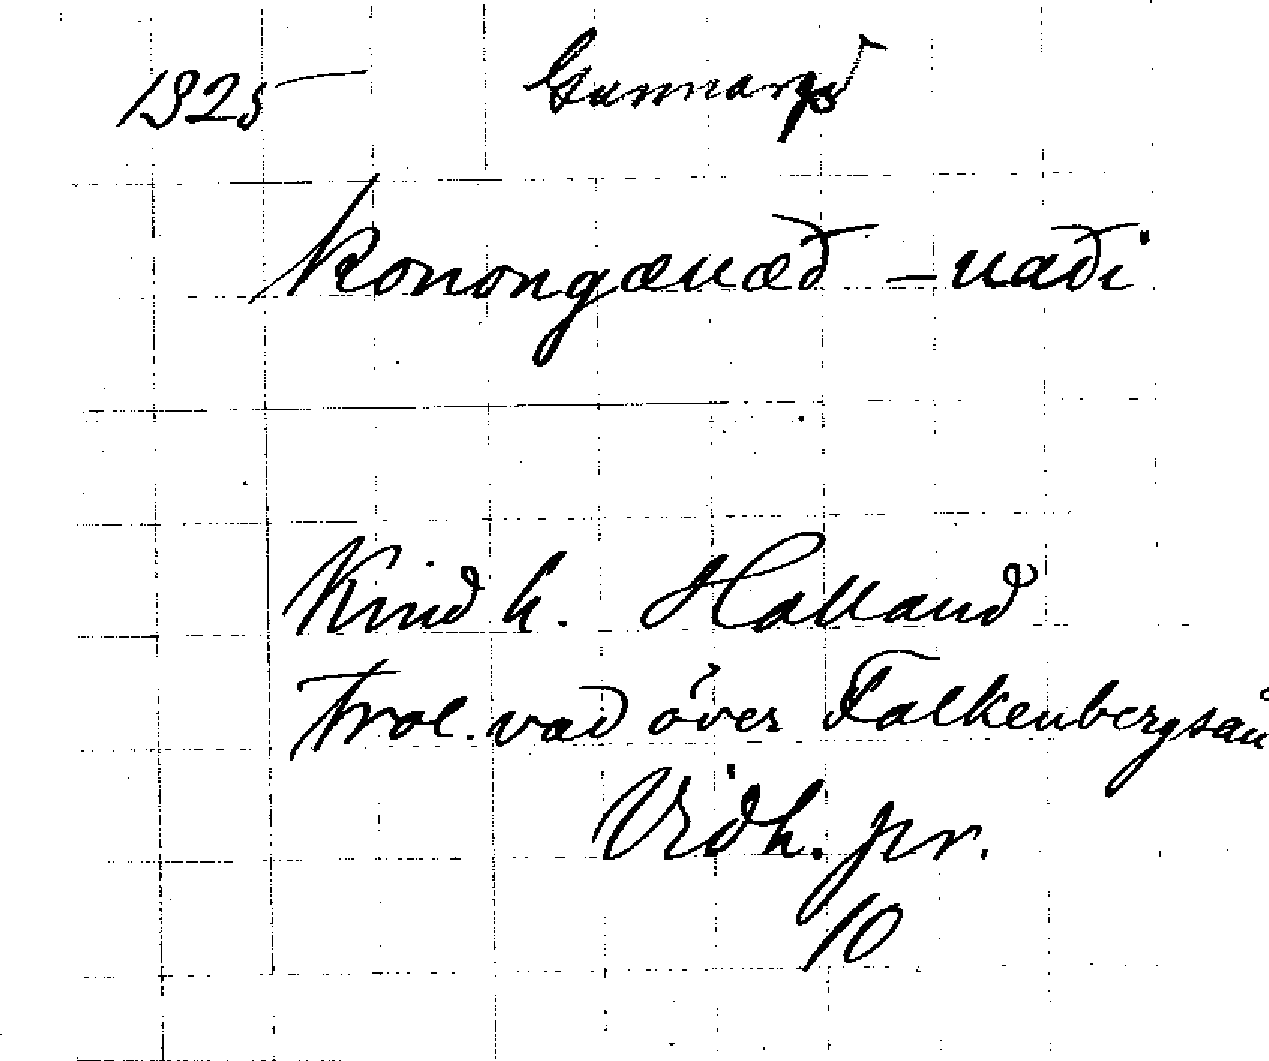 1925 Gunnarp
konongæuæð – uaði
Kind h. Halland
Trol. vad över Falkenbergsån
Vidh. pr.
10